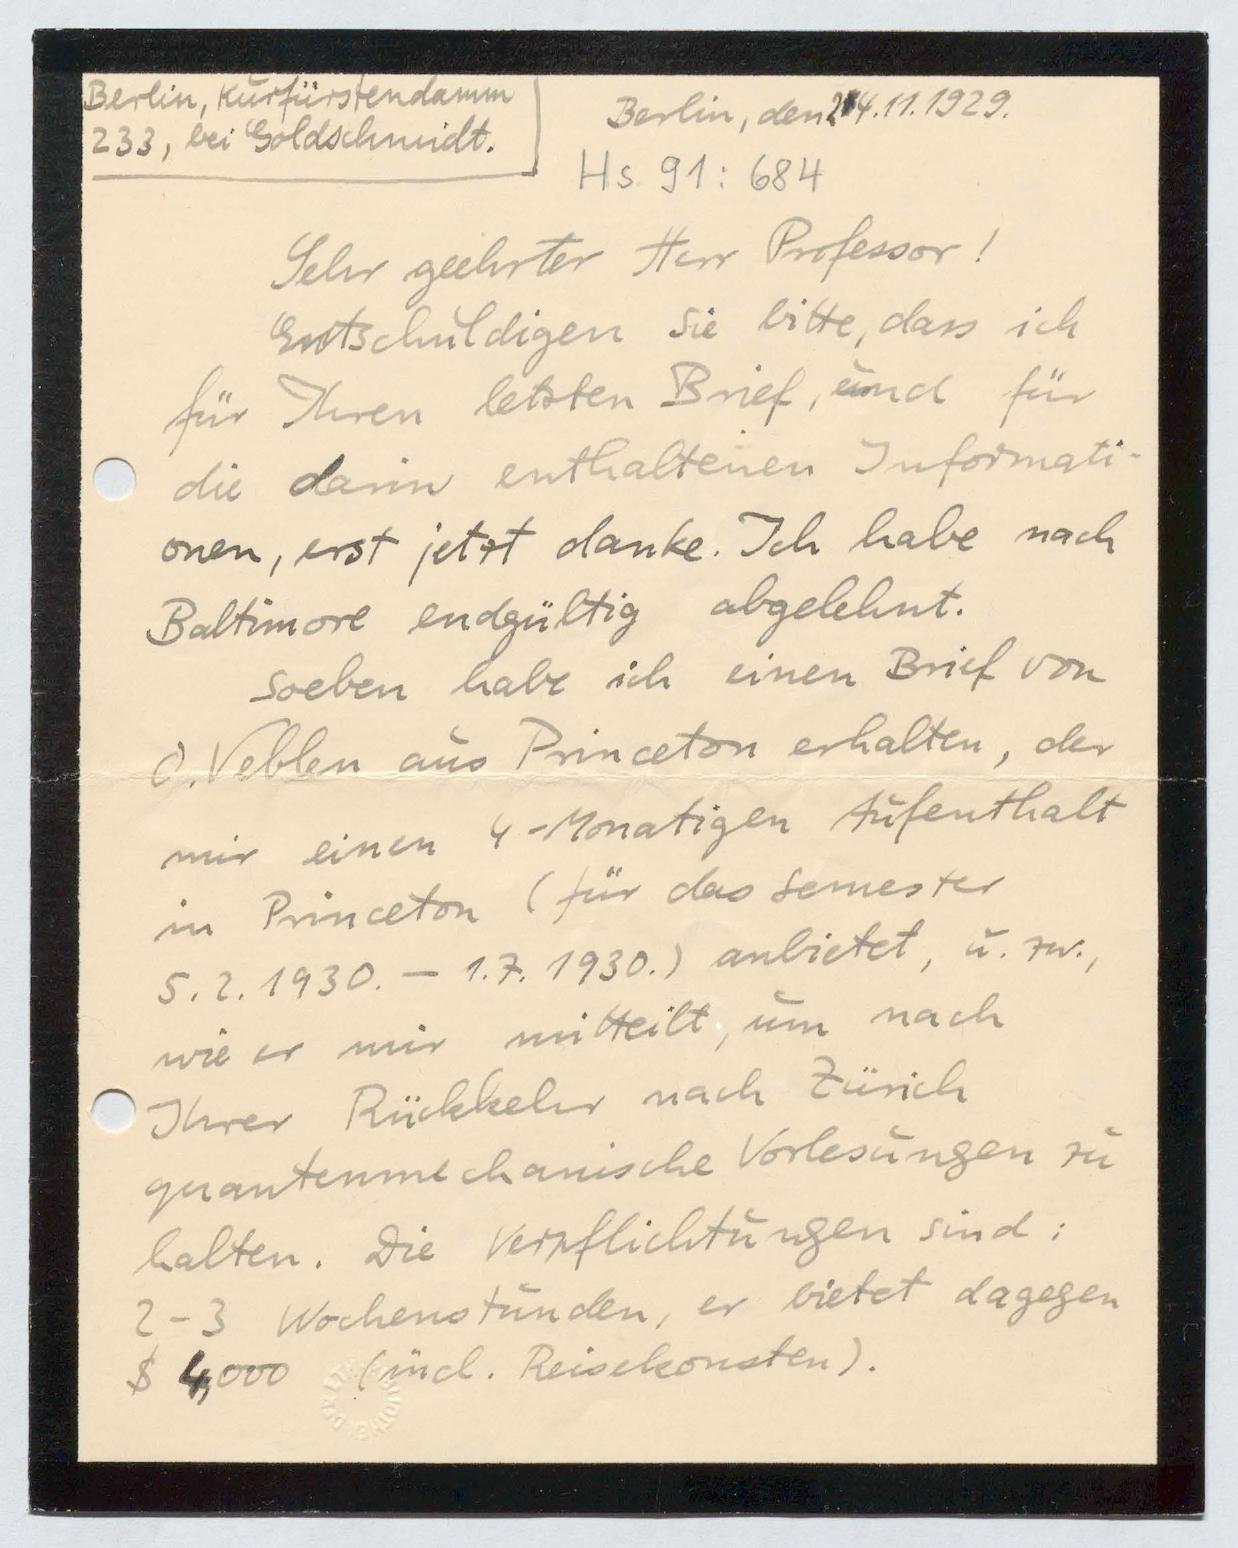 Berlin, Kurfürstendamm
233, bei Goldschmidt.
Berlin, den 4.11.1929.
Hs 91: 684
Sehr geehrter Herr Professor!
Entschuldigen Sie bitte, dass ich
für Ihren letzten Brief, und für
die darin enthaltenen Informati-
onen, erst jetzt danke. Ich habe nach
Baltimore endgültig abgelehnt.
Soeben habe ich einen Brief von
O. Veblen aus Princeton erhalten, der
mir einen 4-Monatigen Aufenthalt
in Princeton (für das Semester
5.2.1930. – 1.7.1930.) anbietet, u. zw.,
wie er mir mitteilt, um nach
Ihrer Rückkehr nach Zürich
quantenmechanische Vorlesungen zu
halten. Die Verpflichtungen sind:
2-3 Wochenstunden, er bietet dagegen
$ 4,000 (incl. Reisekonsten).